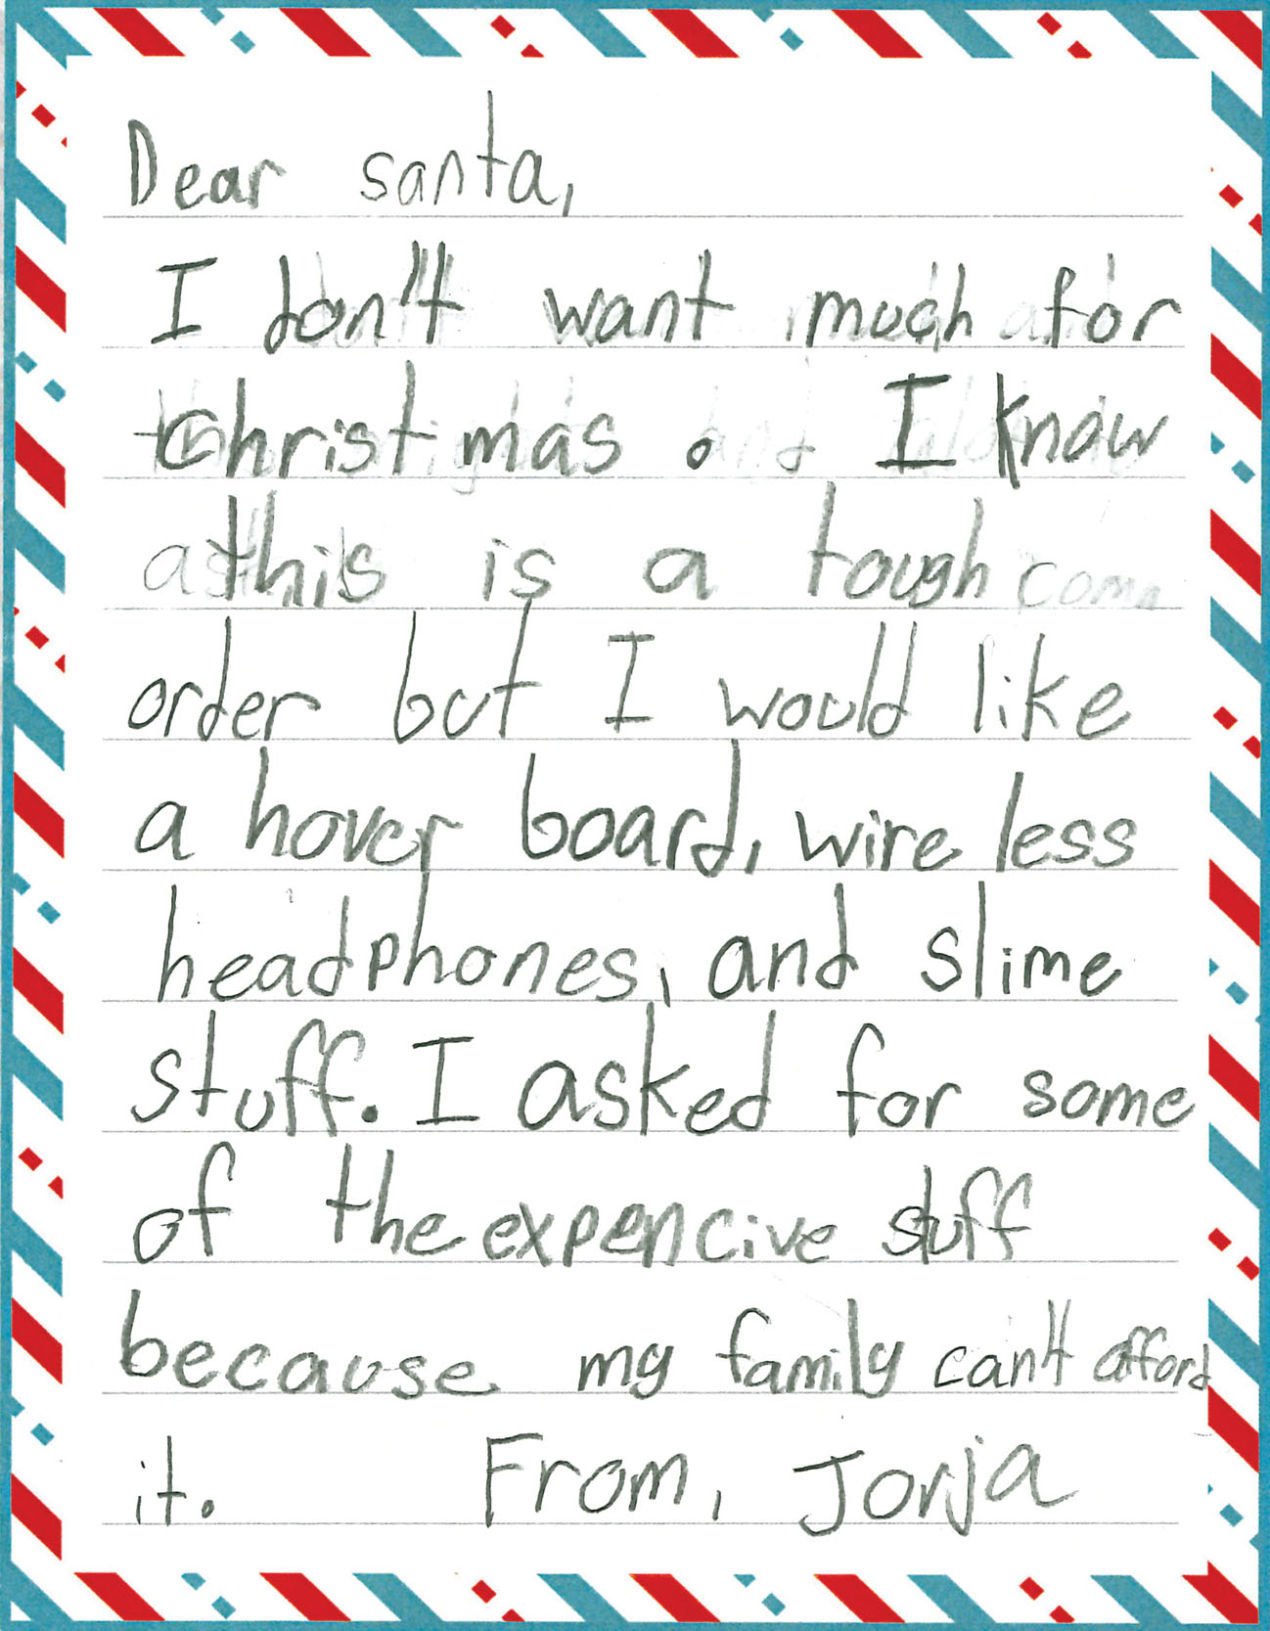 Dear santa,
I don't want much for
christmas. I know
this is a tough
order but I would like
a hover board, wire less
headphones, and slime
stuff. I asked for some
of the expencive stuff
because my family can't afford
it. From, Jorja